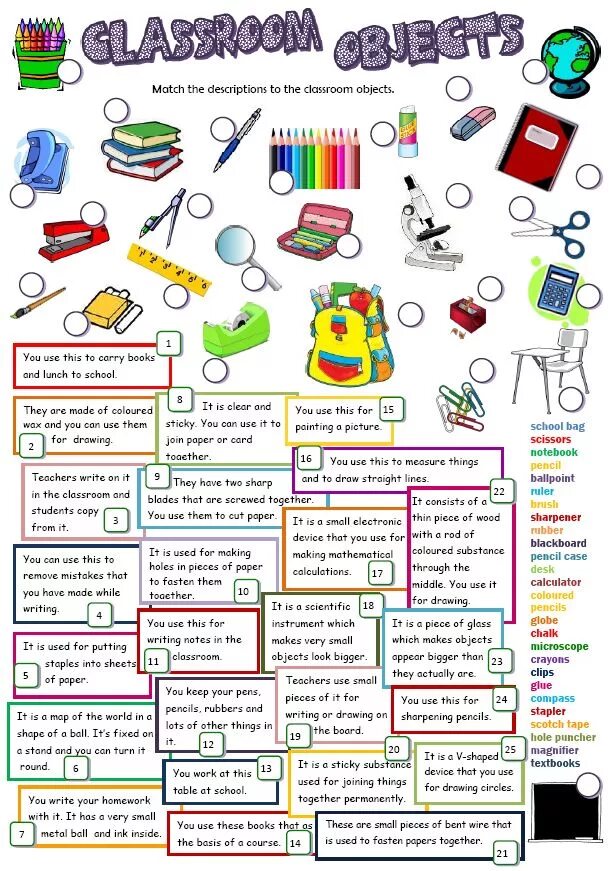 CLASSROOM OBJECTS
Match the descriptions to the classroom objects.
1
You use this to carry books
and lunch to school.
They are made of coloured
wax and you can use them
for drawing.
2
Teachers write on it
in the classroom and
students copy
from it.
3
You can use this to
remove mistakes that
you have made while
writing.
4
It is used for putting
staples into sheets
of paper.
5
It is a map of the world in a
shape of a ball. It's fixed on
a stand and you can turn it
round.
6
You write your homework
with it. It has a very small
metal ball and ink inside.
7
8
It is clear and
sticky. You can use it to
join paper or card
together.
9
They have two sharp
blades that are screwed together.
You use them to cut paper.
It is used for making
holes in pieces of paper
to fasten them
together.
10
You use this for
writing notes in the
classroom.
11
You keep your pens,
pencils, rubbers and
lots of other things in
it.
12
You work at this
table at school.
13
You use these books that as
the basis of a course.
14
You use this for
painting a picture.
15
16
You use this to measure things
and to draw straight lines.
It is a small electronic
device that you use for
making mathematical
calculations.
17
18
It is a scientific
instrument which
makes very small
objects look bigger.
Teachers use small
pieces of it for
writing or drawing on
the board.
19
20
It is a sticky substance
used for joining things
together permanently.
These are small pieces of bent wire that
is used to fasten papers together.
21
22
It consists of a
thin piece of wood
with a rod of
coloured substance
through the
middle. You use it
for drawing.
It is a piece of glass
which makes objects
appear bigger than
they actually are.
23
You use this for
sharpening pencils.
24
25
It is a V-shaped
device that you use
for drawing circles.
school bag
scissors
notebook
pencil
ballpoint
ruler
brush
sharpener
rubber
blackboard
pencil case
desk
calculator
coloured
pencils
globe
chalk
microscope
crayons
clips
glue
compass
stapler
scotch tape
hole puncher
magnifier
textbooks
1 2 3 4 5 6